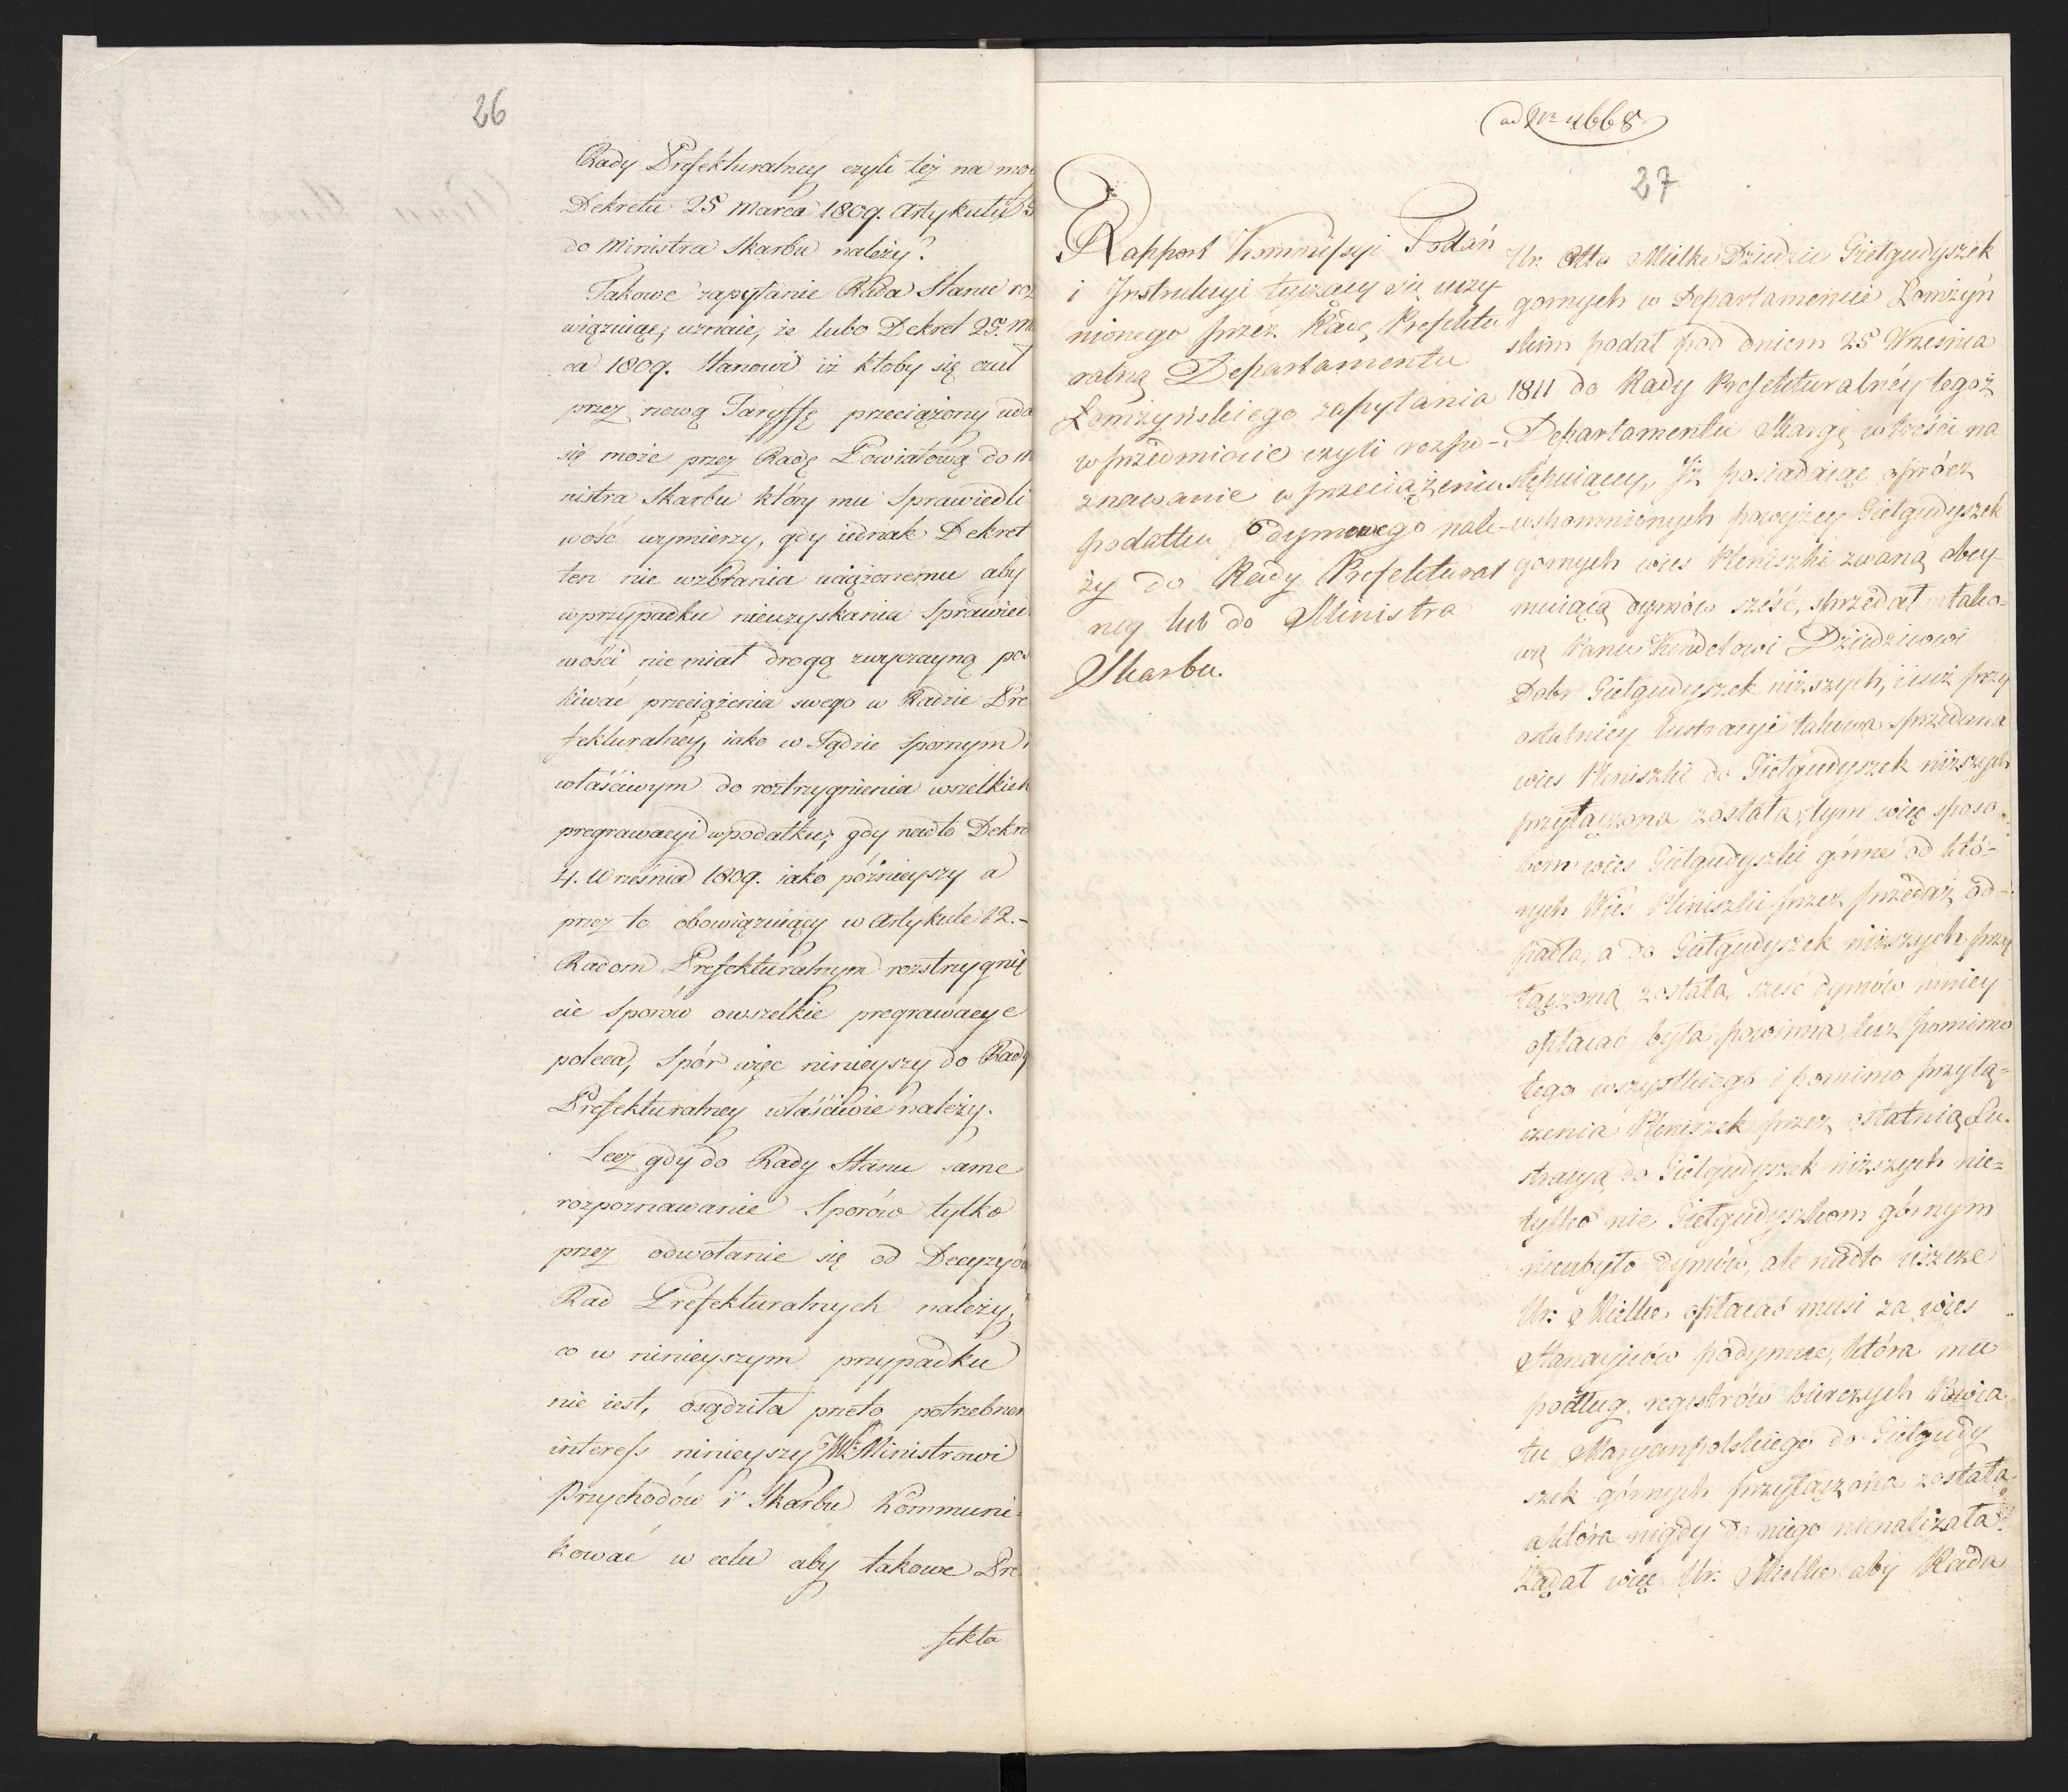 26
Rady Prefekturalney czyli też na mo
Dekretu 25 Marca 1809. Artykułu 5
do Ministra Skarbu należy?
Takowe zapytanie Rada Stanu roz
wiązuiąc, uznaie, że lubo Dekret 25. Ma
ca 1809. Stanowi iż ktoby się czuł
przez nową Taryffę przeciążony uda
się może przez Radę Powiatową do M
nistra Skarbu który mu Sprawiedli
wość wymierzy, gdy iednak Dekret
ten nie wzbrania uciążonemu aby
w przypadku nieuzyskania Sprawied
wości nie miał drogą zwyczayną pos
kiwać przeciążenia swego w Radzie Pre
fekturalney, iako w Sądzie Spornym
właściwym do roztrzygnienia wszelkich
pregrawacyi w podatku; gdy nadto Dekre
4. Września 1809. iako póżnieyszy a
przez to obowiązuiący w Artykule 12.-
Radom Prefekturalnym rozstrzygnię
cie Sporów o wszelkie pregrawacye
poleca, Spór więc ninieyszy do Rady
Prefekturalney właściwie należy.
Lecz gdy do Rady Stanu same
rozpoznawanie Sporów tylko
przez odwołanie się od Decyzyów
Rad Prefekturalnych należy,
co w ninieyszym przypadku
nie iest, osądziła przeto potrzebnem
interess ninieyszy JW. Ministrowi
Przychodów i Skarbu Kommuni-
kować w celu aby takowe Pre
fekto
ad Nr 4668
27
Rapport Kommissyi Podań
i Instrukcyi tyczący się uczy
nionego przez Radę Prefektu
ralną Departamentu
Łomżyńskiego zapytania
w przedmiocie czyli rozpo-
znawanie w przeciążeniu
podatku Podymnego nale-
ży do Rady Prefektural
ney lub do Ministra
Skarbu.
Ur. Otto Mielke Dziedzic Giełgudyszek
gornych w Departamencie Łomżyń
skim podał pod dniem 25 Września
1811 do Rady Prefekturalnéy tegoż
Departamentu Skargę w treści na
stępuiącey, Iż posiadaiąc oprócz
wspomnionych powyżey Giełgudyszek
gornych wieś Pleniszki zwaną obey-
muiącą dymów sześć, sprzedał tako-
wą Panu Kendelowi Dziedzicowi
Dobr Giełgudyszek niższych, i już przy
ostatniey lustracyi takowa sprzedana
wieś Pleniszki do Giełgudyszek niższych
przyłączona została, tym więc sposo-
bem wieś Giełgudyszki górne od któ-
rych Wieś Pleniszki przez przedaż od-
padła, a do Giełgudyszek niższych przy
łączoną została, sześć dymów mniey
opłacać była powinna, lecz pomimo
tego wszystkiego i pomimo przyłą-
czenia Pleniszek przez ostatnią Lu-
stracyą do Giełgudyszek niższych nie-
tylko nie Giełgudyszkom górnym
nieubyło dymów, ale nadto ieszcze
Ur. Mielke opłacać musi za wieś
podymne, która mu
podług registrów bierczych Powia
tu Maryampolskiego do Giełgudy
szek górnych przyłączona została
a która nigdy do niego nienależała.
Żądał więc Ur. Mielke aby Rada